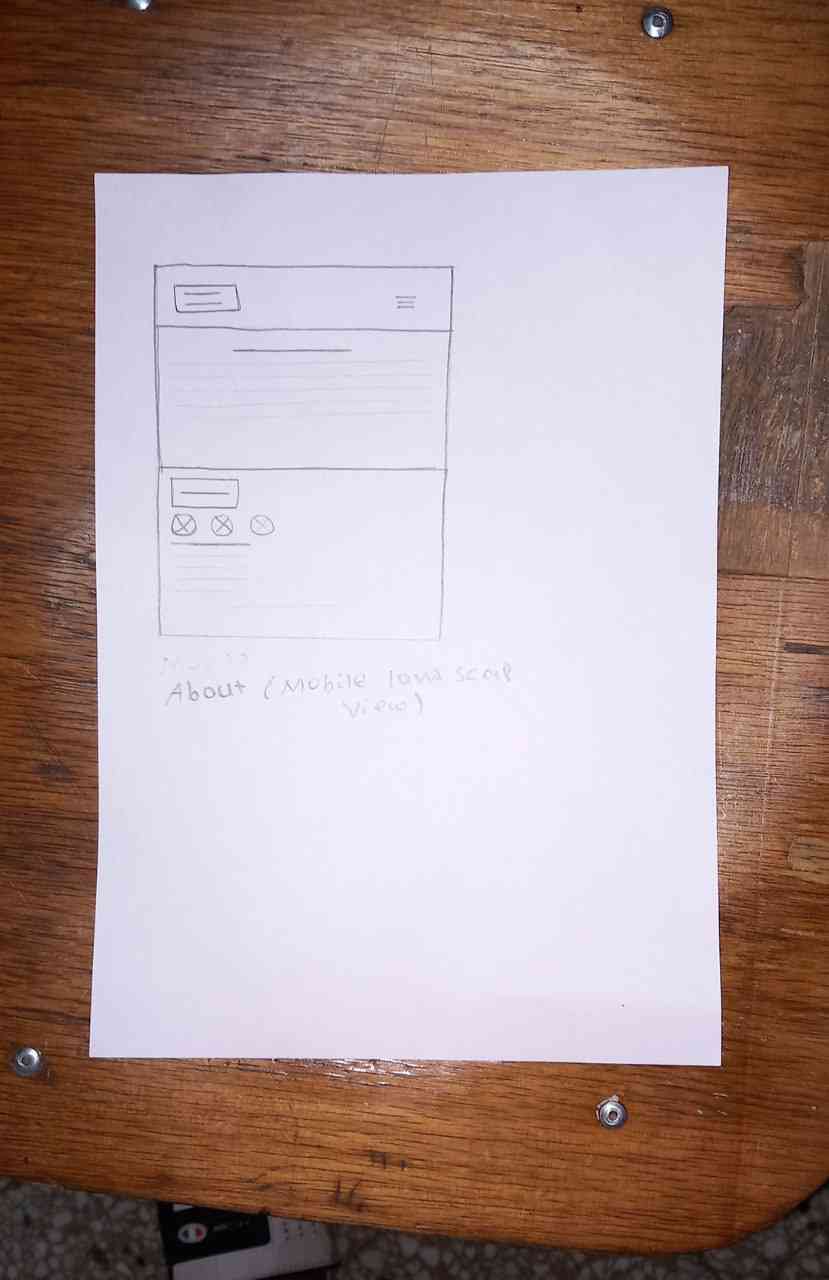 About (Mobile landscap
view)